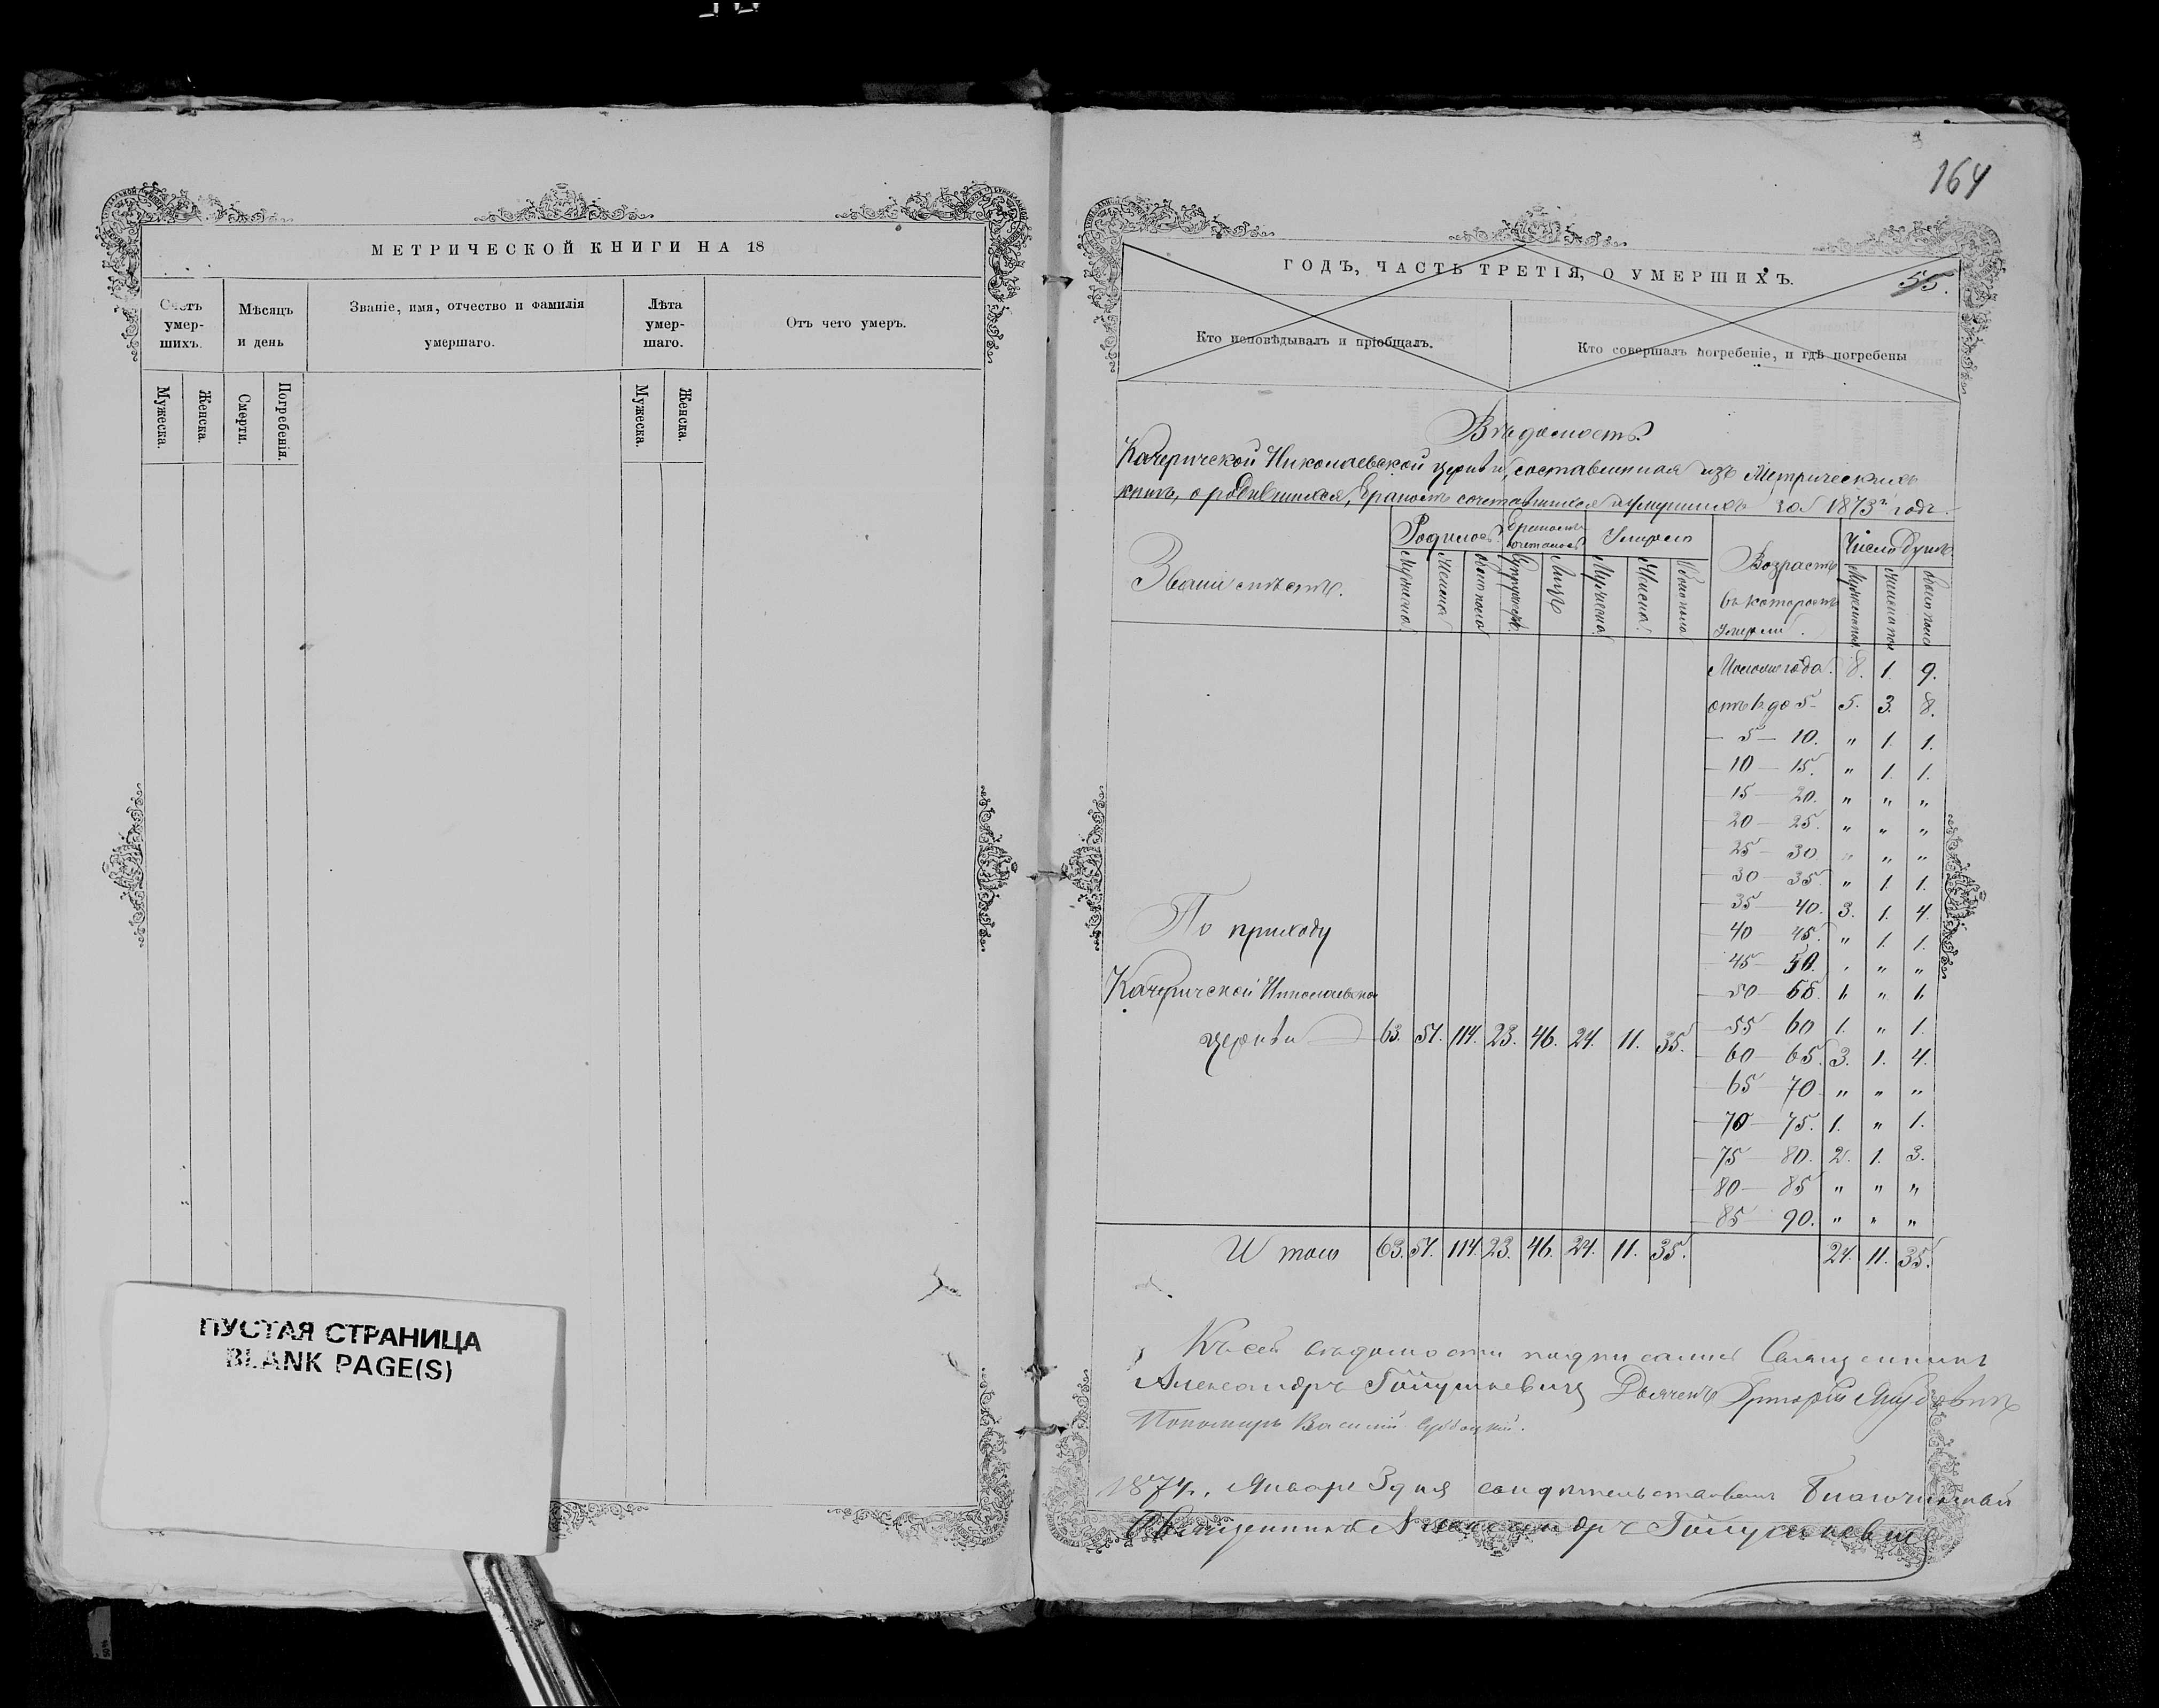 МЕТРИЧЕСКОЙ КНИГИ НА 18
Счетъ умер- шихъ.
Мѣсяцъ и день
Званіе, имя, отчество и фамилія умершаго.
Лѣта умер- шаго.
Отъ чего умеръ.
Мужеска.
Женска.
Смерти.
Погребенія.
Мужеска.
Женска.
ПУСТАЯ СТРАНИЦА
BLANK PAGE(S)
164
ГОДЪ, ЧАСТЬ ТРЕТІЯ, О УМЕРШИХЪ.
55.
Кто исповѣдывалъ и пріобщалъ.
Кто совершалъ погребеніе, и гдѣ погребены
Вѣдомость.
Качеричской Николаевской церкви, составленная изъ Метрическихъ
книгъ, о родившихся, бракомъ сочетавшихся и умершихъ за 1873й годъ.
Званіе мѣстъ.
Родилось.
Бракомъ сочеталось
Умерло
Возрастъ въ которомъ умерли.
Число душъ.
Мужеска
Женска
обоего пола
Супружествъ
Лицъ
Мужеска
Женска
обоего пола
Мужеска пола
Женска пола
обоего пола
Менѣе года. 8. 1. 9.
отъ 1 до 5 5. 3. 8.
— 5 — 10. " 1. 1.
— 10 — 15. " 1. 1.
— 15 — 20. " " "
— 20 — 25. " " "
— 25 — 30 " " "
— 30 — 35. " 1. 1.
— 35 — 40. 3. 1. 4.
— 40 45. " 1. 1.
— 45 — 50. " " "
— 50 — 55. 1. " 1.
— 55 60 1. " 1.
— 60 — 65. 3. 1. 4.
— 65 70 " " "
— 70 — 75. 1. " 1.
— 75 — 80. 2. 1. 3.
— 80 — 85 " " "
— 85 90. " " "
По приходу
Качеричской Николаевской
церкви 63. 51. 114. 23. 46. 24. 11. 35.
Итого 63. 51. 114. 23. 46. 24. 11. 35. 24. 11. 35.
Къ сей вѣдомости подписались Священникъ
Александръ Дьячекъ Григорій
Пономарь Василій
1874. Января 3 дня свидѣтельствовалъ Благочинный
Священникъ Александръ